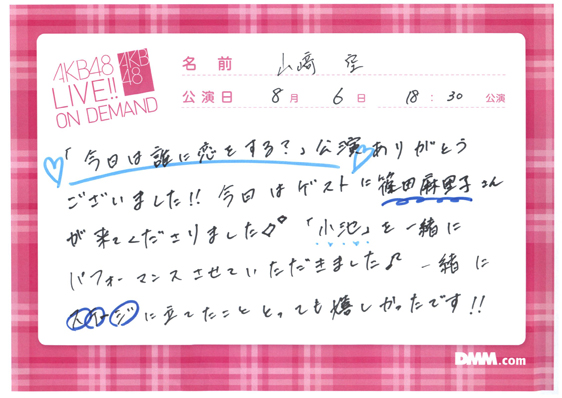 AKB48
LIVE!!
ON DEMAND
AKB
48
名前 山﨑 空
公演日 8月 6日 18:30 公演
「今日は誰に恋をする?」公演ありがとう
ございました!! 今日はゲストに篠田麻里子さん
が来てくださりました 「小池」を一緒に
パフォーマンスさせていただきました♪ 一緒に
ステージに立てたこととっても嬉しかったです!!
DMM.com